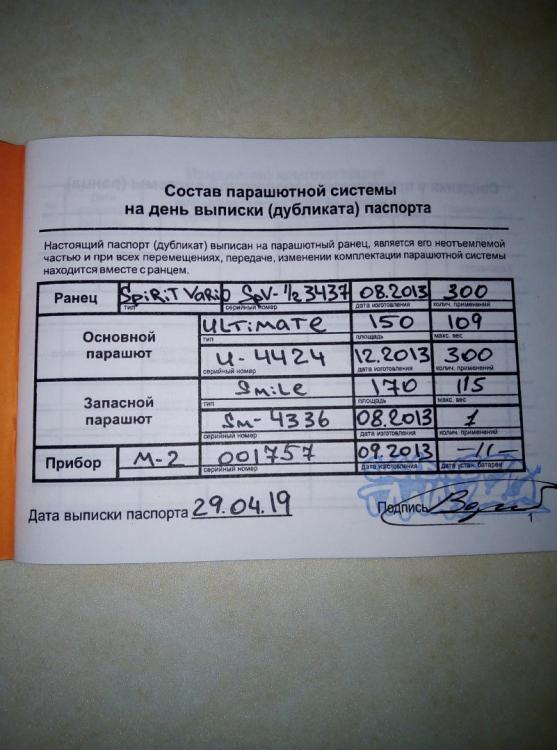 Состав парашютной системы
на день выписки (дубликата) паспорта
Настоящий паспорт (дубликат) выписан на парашютный ранец, является его неотъемлемой
частью и при всех перемещениях, передаче, изменении комплектации парашютной системы
находится вместе с ранцем.
Ранец SPiRiT VaRiO SpV-1/2 3437 08.2013 300
тип серийный номер дата изготовления колич. применений
Основной парашют ULTiMATE 150 109
тип площадь макс. вес
U-4424 12.2013 300
серийный номер дата изготовления колич. применений
Запасной парашют SmiLe 170 115
тип площадь макс. вес
Sm-4336 08.2013 1
серийный номер дата изготовления колич. применений
Прибор M-2 001757 09.2013 -11-
серийный номер дата изготовления дата устан. батареи
Дата выписки паспорта 29.04.19 Подпись
1